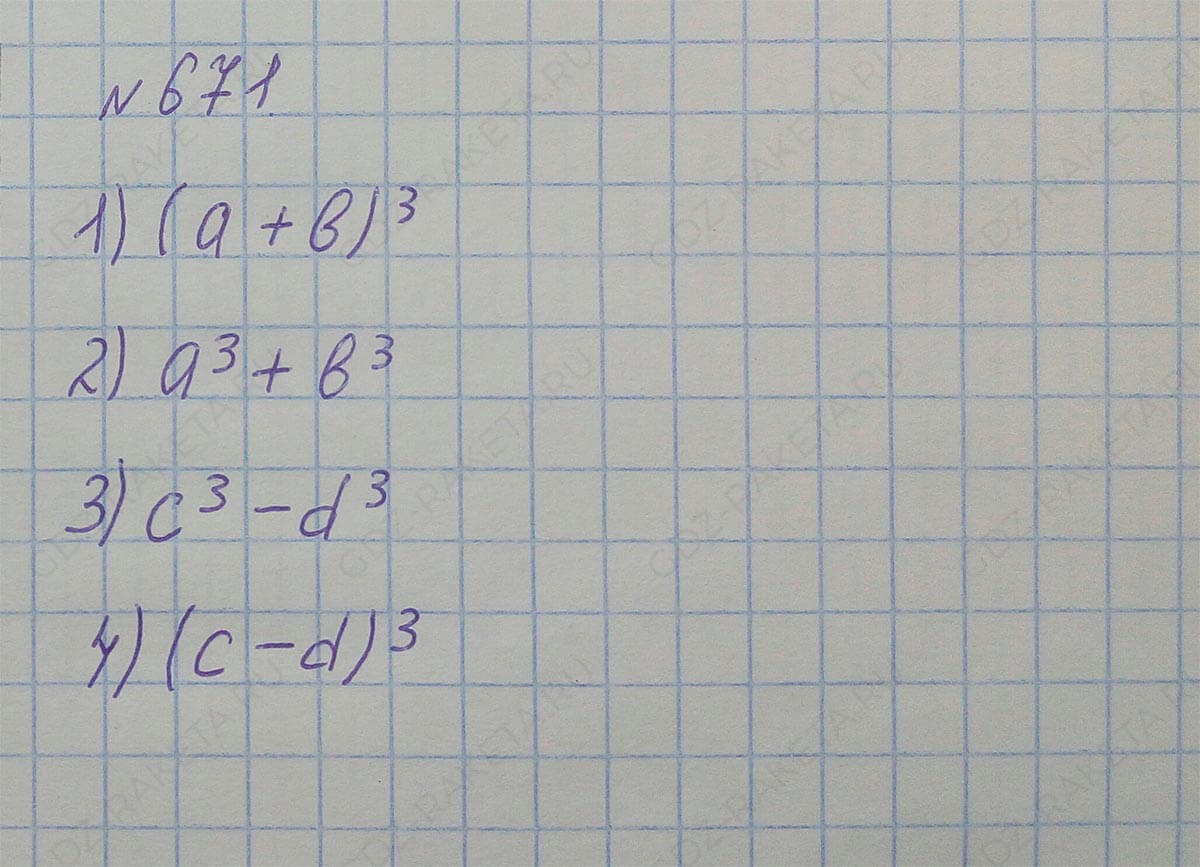 № 671.
1) (a + b)³
2) a³ + b³
3) c³ - d³
4) (c - d)³
GDZ-RAKETA.RU